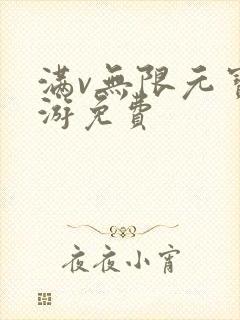 满v無限元寳
游免費
夜夜小宵